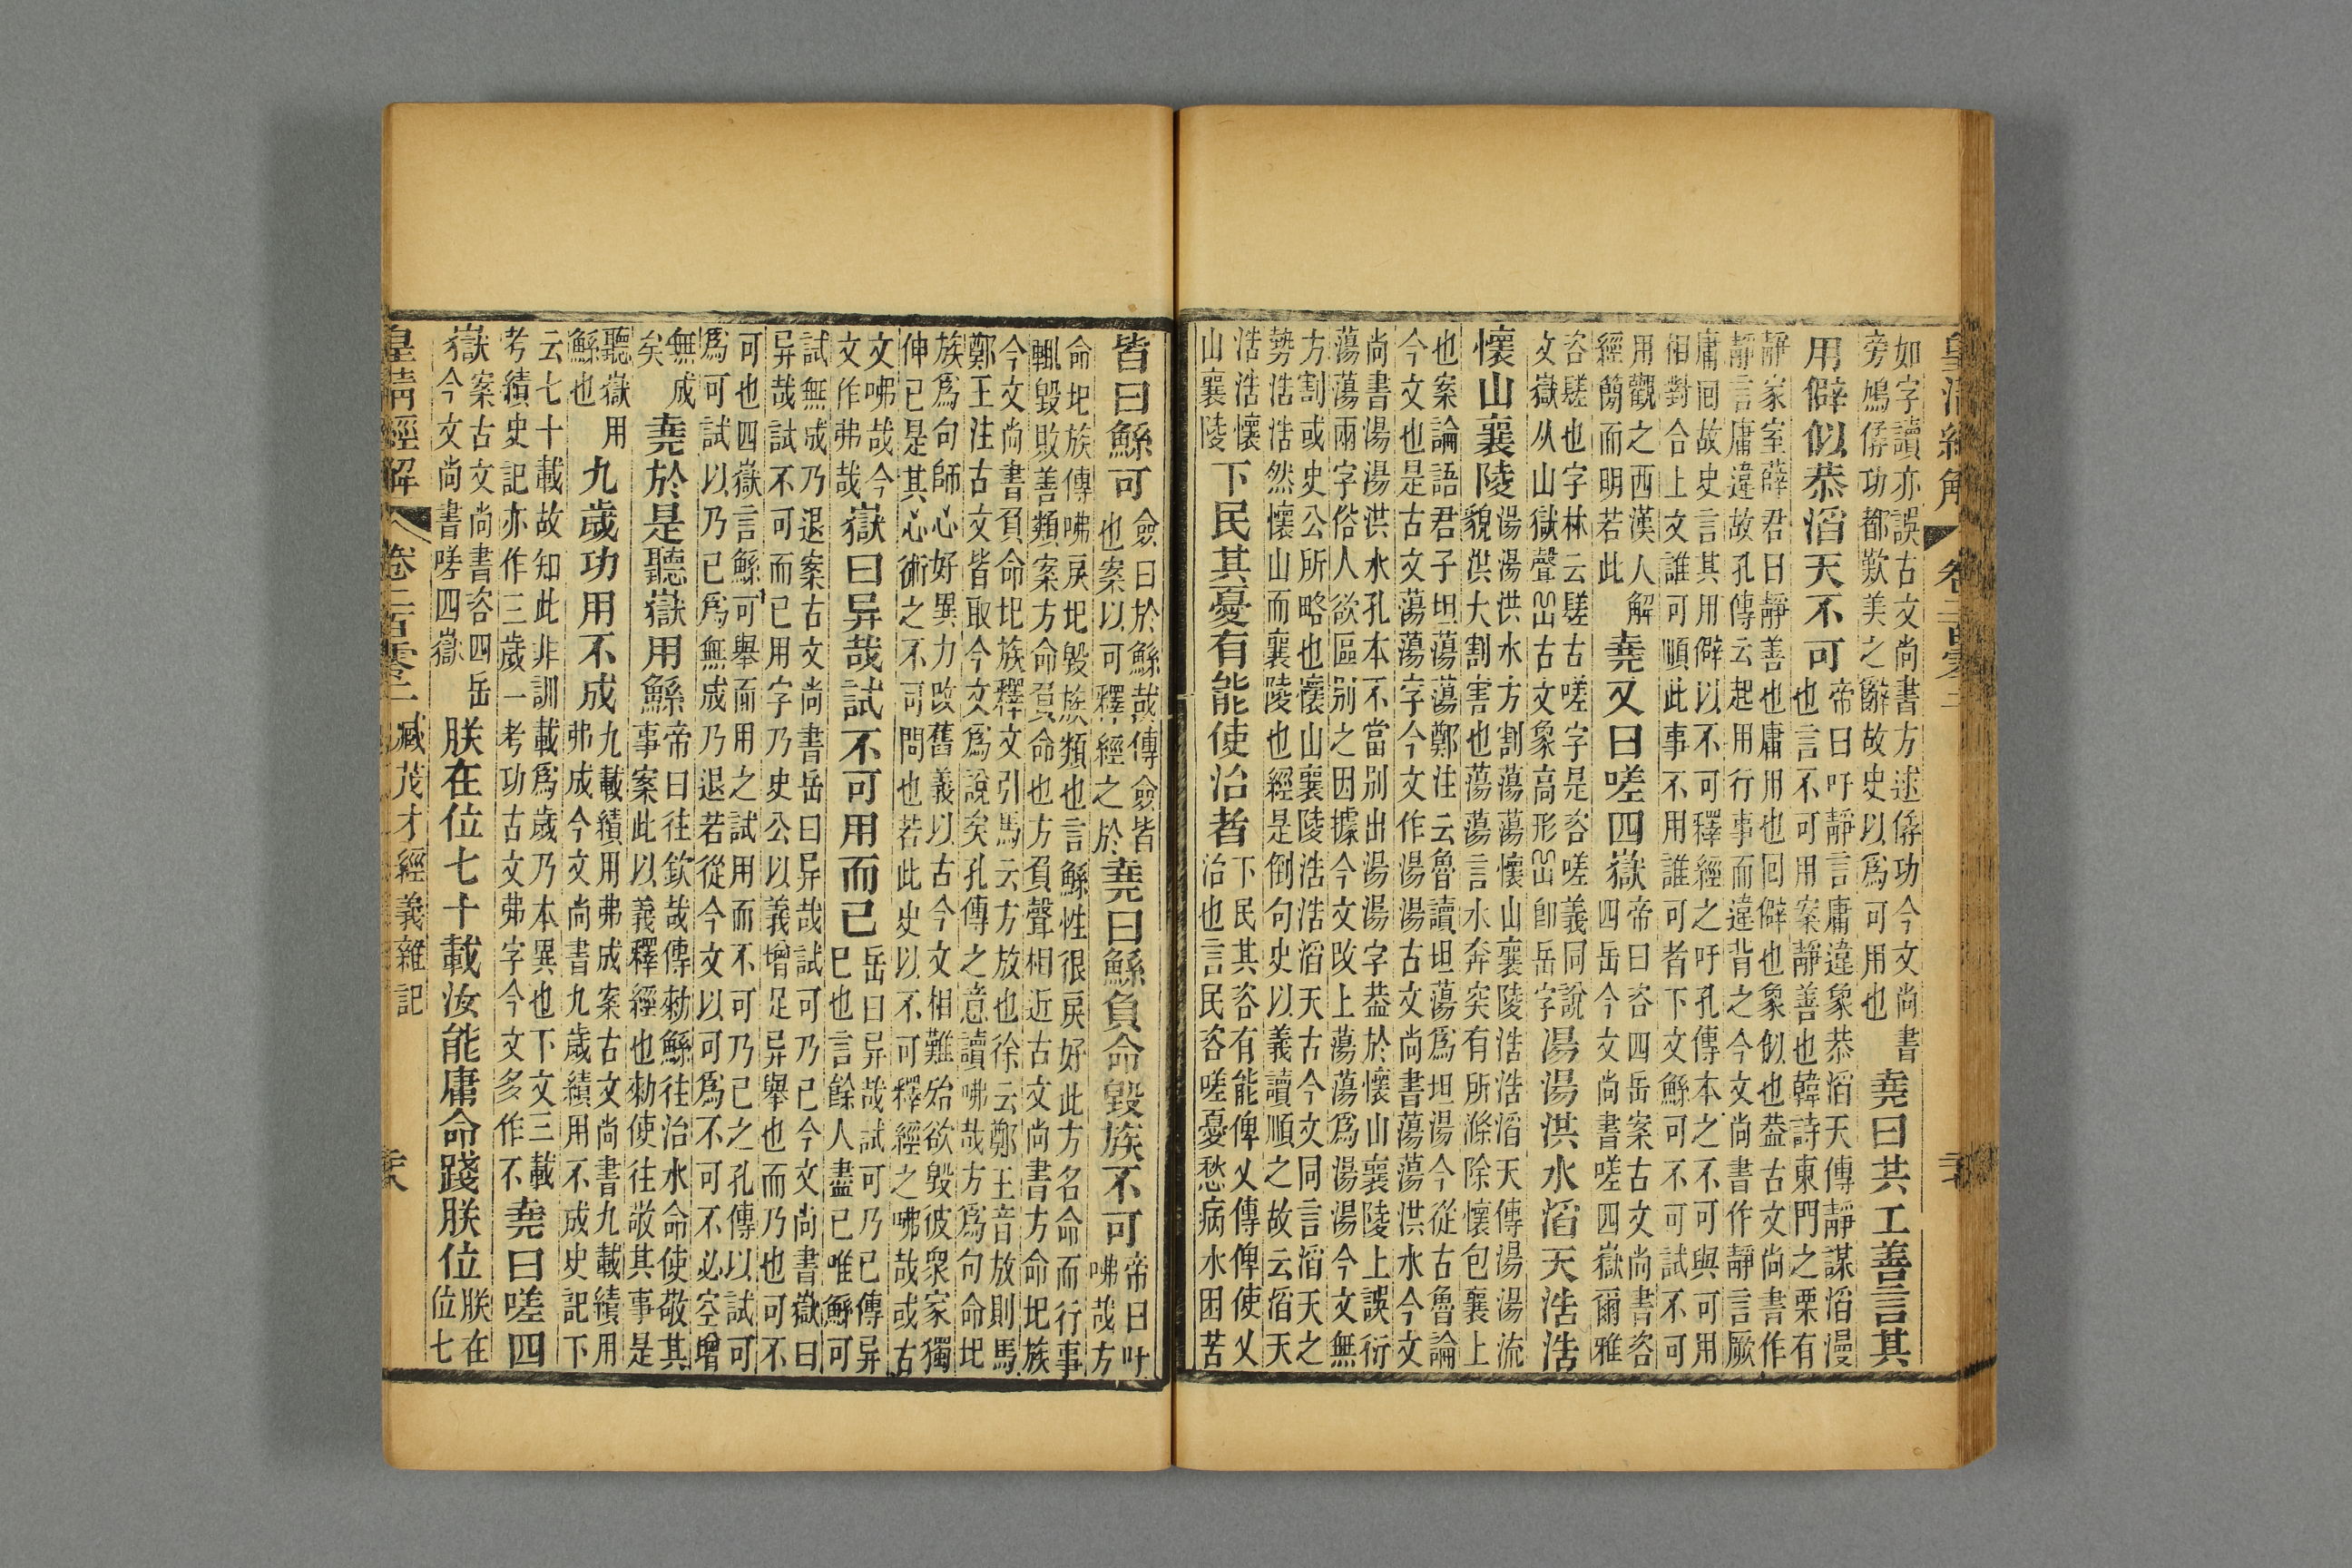 皇清經解 卷二百零二
如字讀亦誤古文尚書方逑孱功今文尚書
旁鳩孱功都歎美之辭故史以爲可用也
堯曰共工善言其
用僻似恭滔天不可
帝曰吁靜言庸違象恭滔天傳靜謀滔漫
也言不可用案靜善也韓詩東門之栗有
靜家室薛君曰靜善也庸用也回僻也象似也葢古文尚書作
靜言庸違故孔傳云起用行事而違背之今文尚書作靜言厥
庸回故史言其用僻以不可釋經之吁孔傳本之不可與可用
相對合上文誰可順此事不用誰可者下文鯀可不可試不可
用觀之西漢人解
經簡而明若此
堯又曰嗟四嶽
帝曰咨四岳案古文尚書咨
四岳今文尚書嗟四嶽爾雅
咨𨲠也字林云𨲠古嗟字是咨嗟義同說
文嶽从山獄聲古文象高形卽岳字
湯湯洪水滔天浩浩
懷山襄陵
湯湯洪水方割蕩蕩懷山襄陵浩浩滔天傳湯湯流
貌洪大割害也蕩蕩言水奔突有所滌除懷包襄上
也案論語君子坦蕩蕩鄭注云魯讀坦蕩爲坦湯今從古魯論
今文也是古文蕩蕩字今文作湯湯古文尚書蕩蕩洪水今文
尚書湯湯洪水孔本不當別出湯湯字葢於懷山襄陵上誤衍
蕩蕩兩字俗人欲區别之因據今文改上蕩蕩爲湯湯今文無
方割或史公所略也懷山襄陵浩浩滔天古今文同言滔天之
勢浩浩然懷山而襄陵也經是倒句史以義讀順之故云滔天
浩浩懷
山襄陵
下民其憂有能使治者
下民其咨有能俾乂傳俾使乂
治也言民咨嗟憂愁病水困苦
皆曰鯀可
僉曰於鯀哉傳僉皆
也案以可釋經之於
堯曰鯀負命毀族不可
帝曰吁
咈哉方
命圯族傳咈戾圯毀族類也言鯀性很戾好此方名命而行事
輒毀敗善類案方命負命也方負聲相近古文尚書方命圯族
今文尚書負命圯族釋文引馬云方放也徐云鄭王音放則馬
鄭王注古文皆取今文爲說矣孔傳之意讀咈哉方爲句命圯
族爲句師心好異力改舊義以古今文相難殆欲毀彼衆家獨
伸己是其心術之不可問也若此史以不可釋經之咈哉或古
文咈哉今
文作弗哉
嶽曰异哉試不可用而已
岳曰异哉試可乃已傳异
已也言餘人盡已唯鯀可
試無成乃退案古文尚書岳曰异哉試可乃已今文尚書嶽曰
异哉試不可而已用字乃史公以義增足异舉也而乃也可不
可也四嶽言鯀可舉而用之試用而不可乃已之孔傳以試可
爲可試以乃已爲無成乃退若從今文以可爲不可不必空增
無成
矣
堯於是聽嶽用鯀
帝曰往欽哉傳勑鯀往治水命使敬其
事案此以義釋經也勑使往敬其事是
聽嶽用
鯀也
九歲功用不成
九載績用弗成案古文尚書九載績用
弗成今文尚書九歲績用不成史記下
云七十載故知此非訓載爲歲乃本異也下文三載
考績史記亦作三歲一考功古文弗字今文多作不
堯曰嗟四
嶽
案古文尚書咨四岳
今文尚書嗟四嶽
朕在位七十載汝能庸命踐朕位
朕在
位七
皇清經解 卷二百零二 臧茂才經義雜記